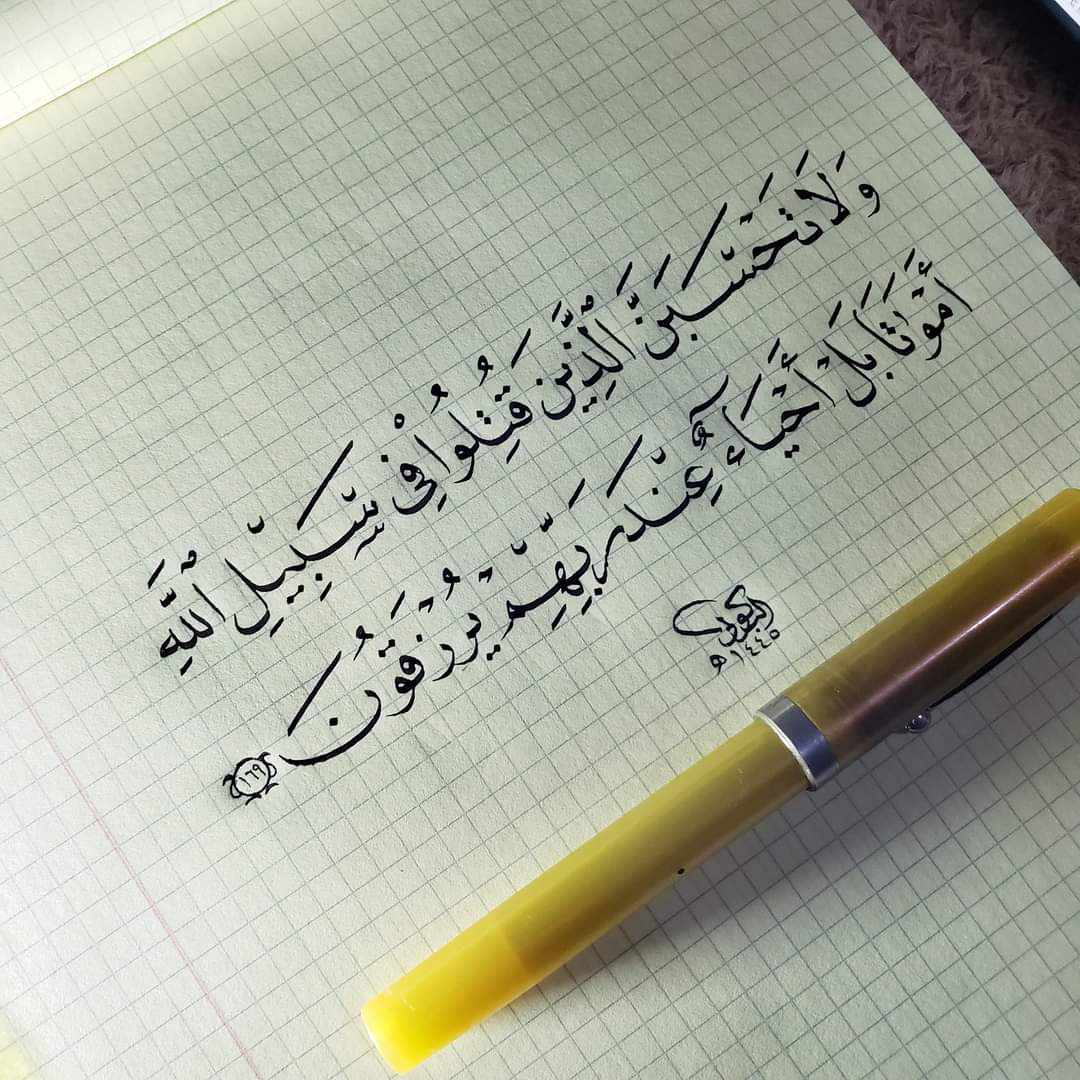 وَلَا تَحْسَبَنَّ ٱلَّذِينَ قُتِلُوا۟ فِى سَبِيلِ ٱللَّهِ
أَمْوَٰتًۢا بَلْ أَحْيَآءٌ عِندَ رَبِّهِمْ يُرْزَقُونَ ١٦٩
١٤٤٥هـ